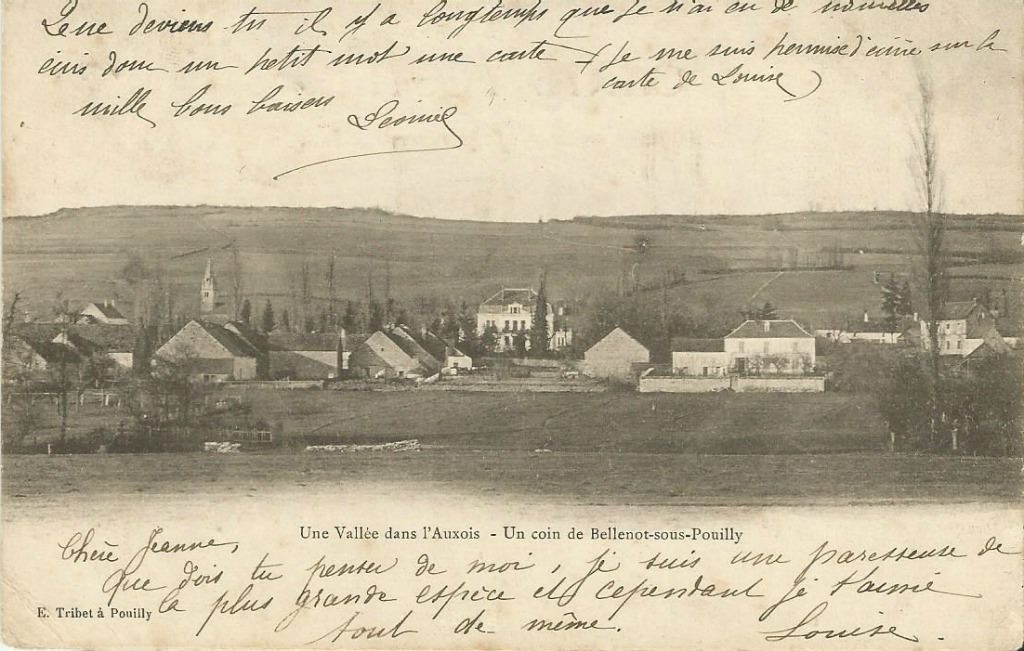 Que deviens tu il y a longtemps que je n'ai eu de nouvelles
donc un petit mot une carte (Je me suis permise d'écrire sur la
carte de Louise)
mille bons baisers
Léonie
Une Vallée dans l'Auxois - Un coin de Bellenot-sous-Pouilly
Chère Jeanne,
Que dois tu penser de moi, je suis une paresseuse de
la plus grande espèce et cependant je t'aime
E. Tribet à Pouilly
tout de même. Louise.